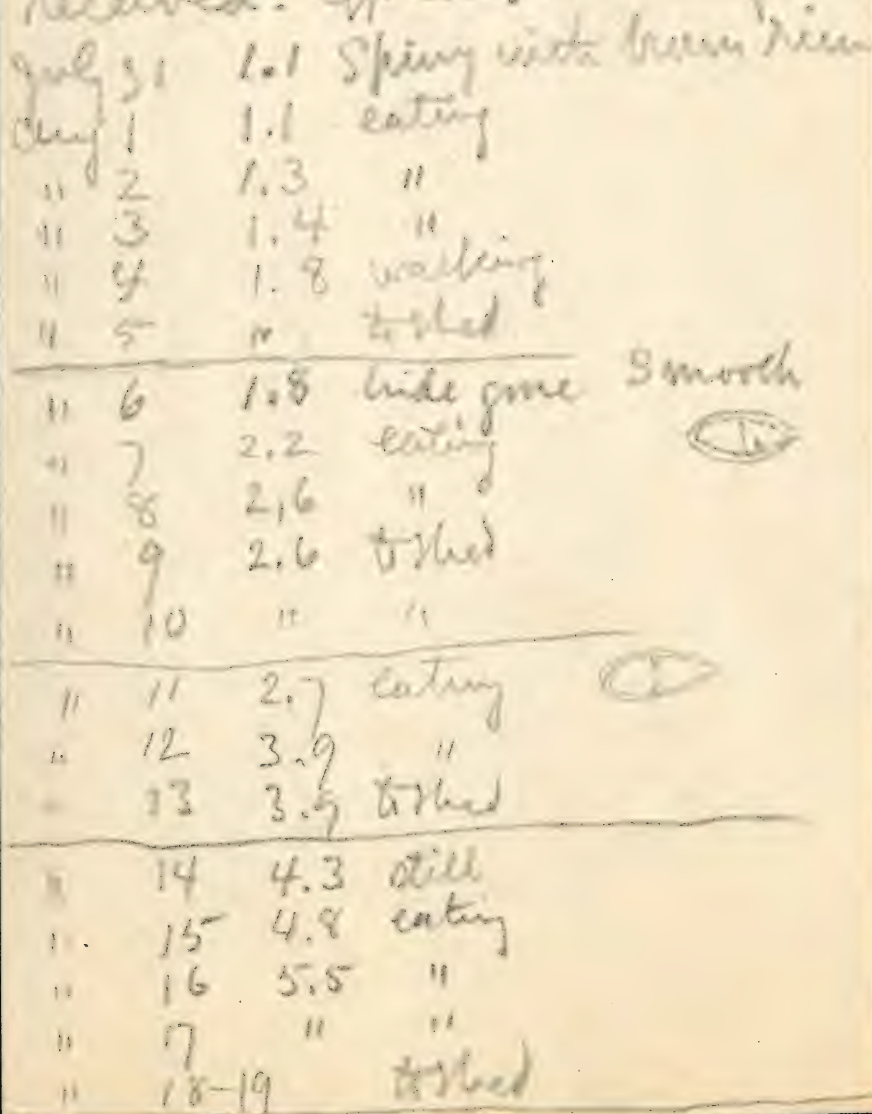 received.
July 31 1.1 Spiny with brown
Aug 1 1.1 eating
" 2 1.3 "
" 3 1.4 "
" 4 1.8 walking
" 5 " to shed
" 6 1.8 hide gone Smooth
" 7 2.2 eating
" 8 2,6 "
" 9 2.6 to shed
" 10 " "
" 11 2.7 eating
" 12 3.9 "
" 13 3.9 to shed
" 14 4.3 still
" 15 4.8 eating
" 16 5.5 "
" 17 " "
" 18-19 to shed